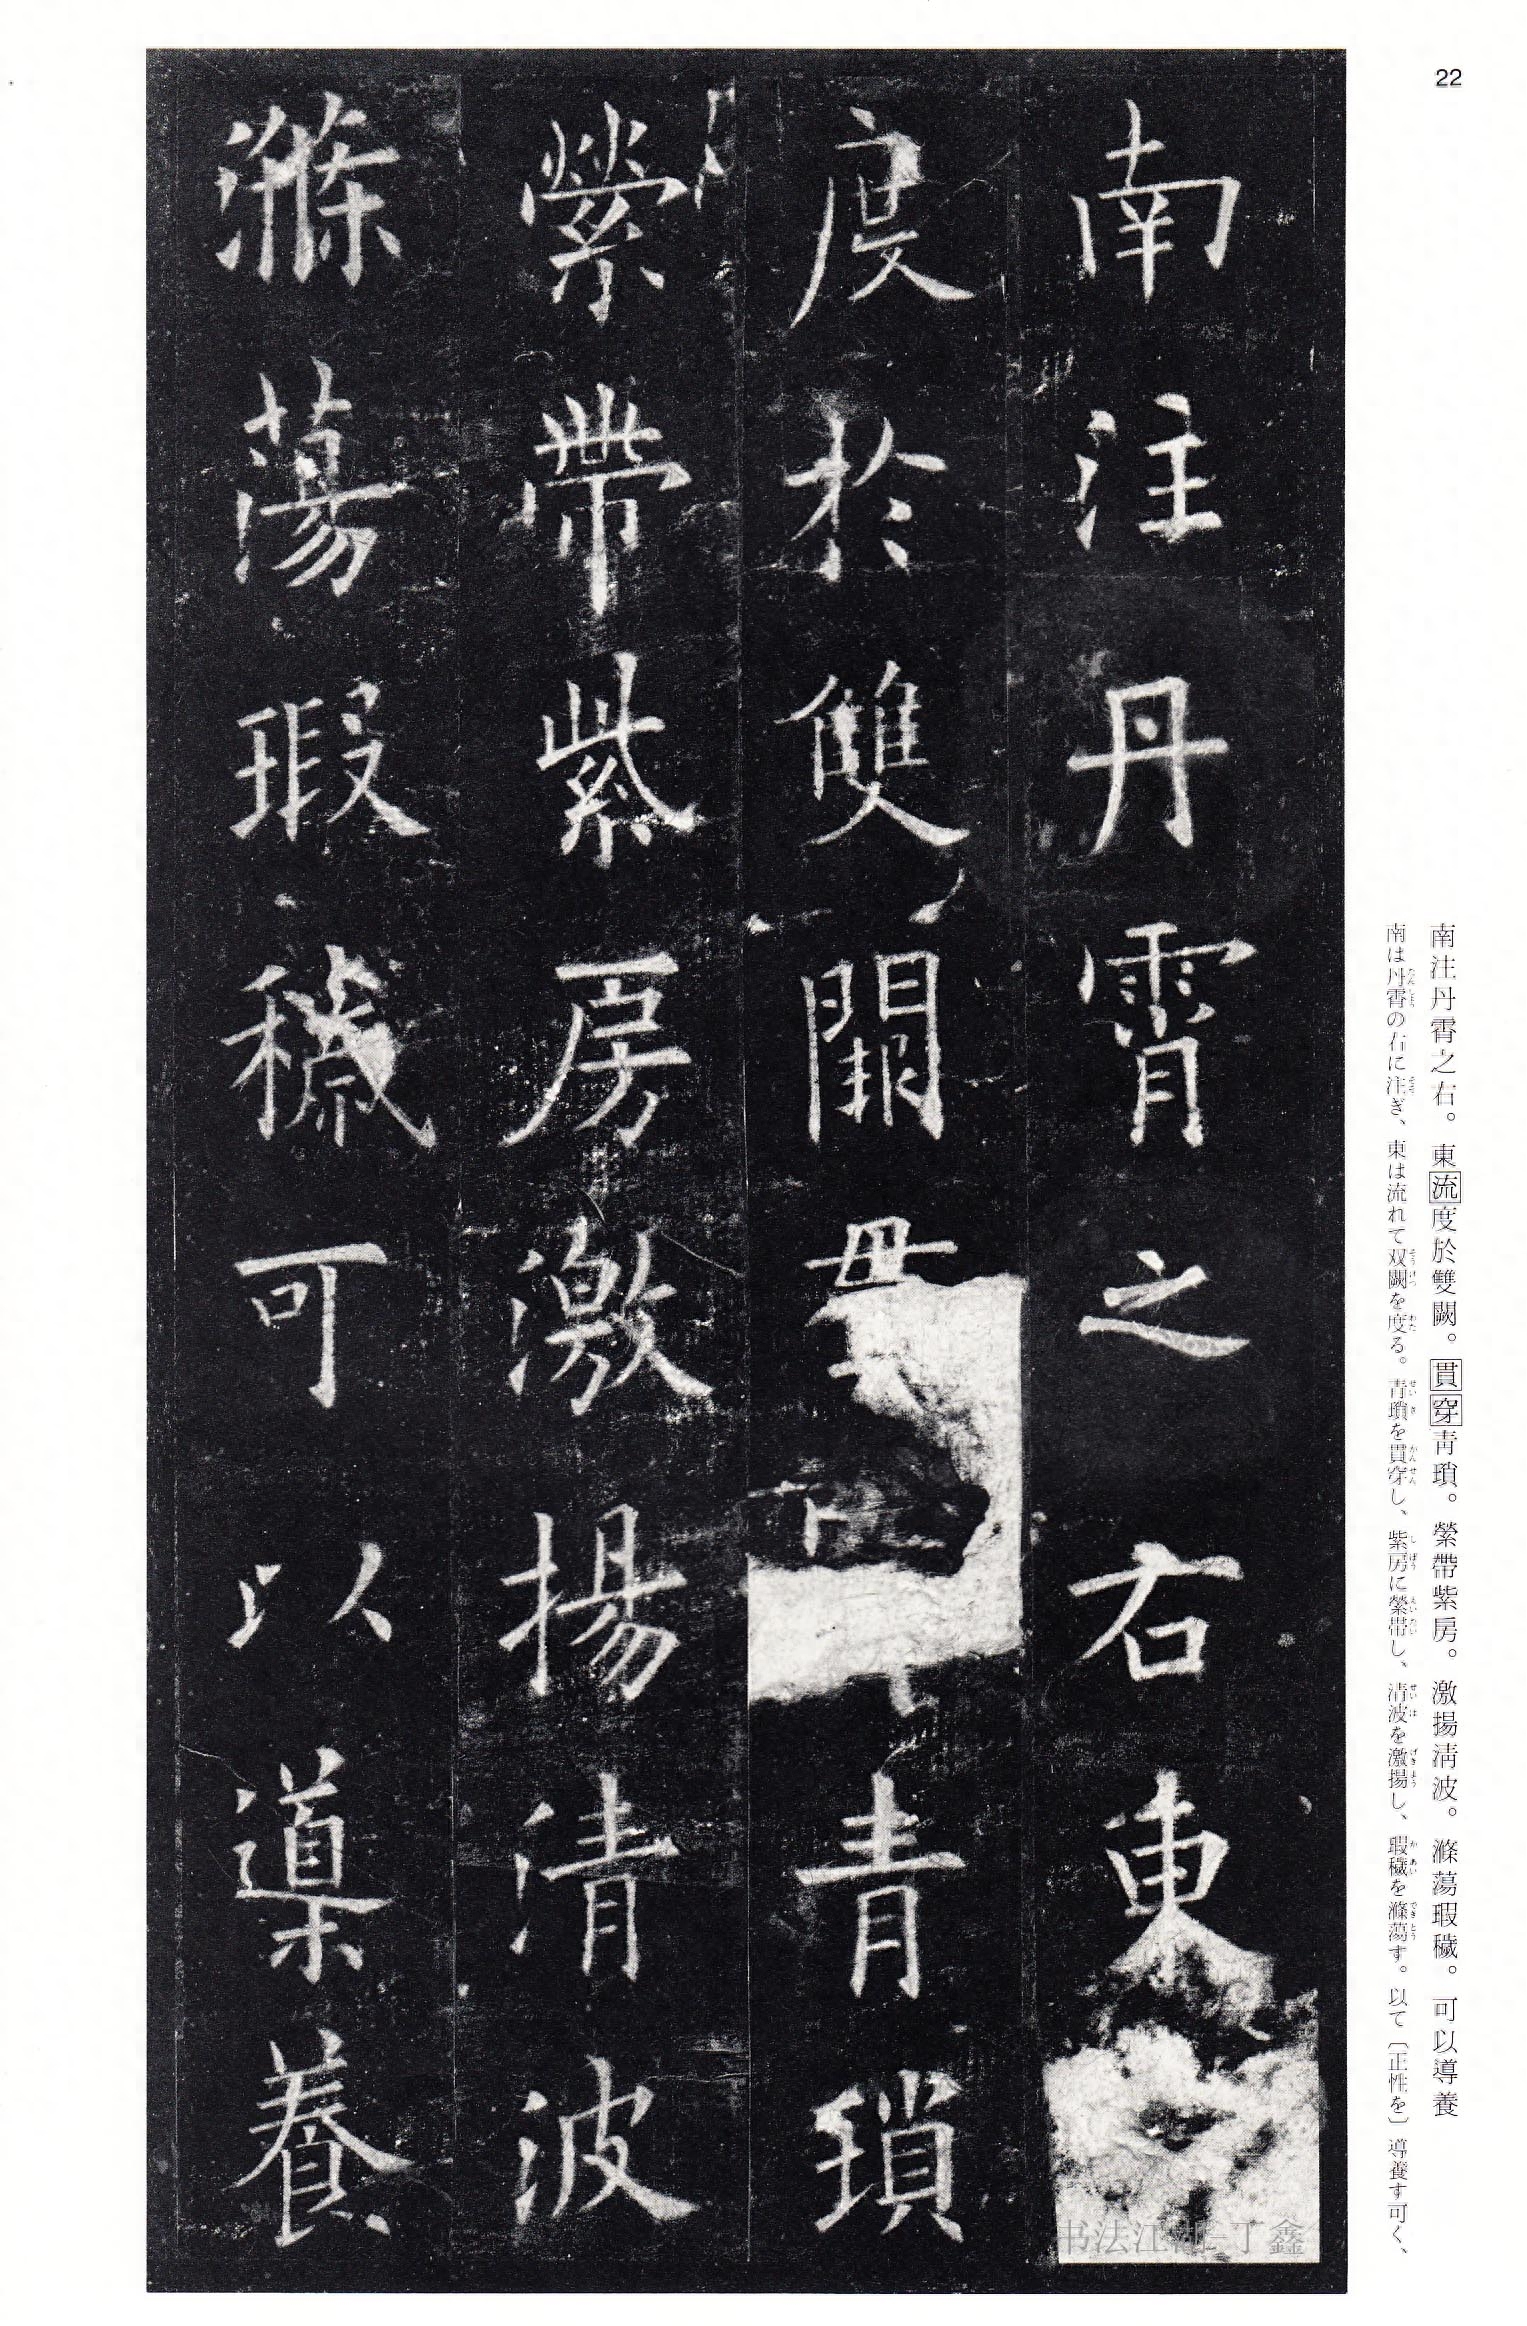 22
南注丹霄之右。東流度於雙闕。貫穿青瑣。縈帶紫房。激揚清波。滌蕩瑕穢。可以導養
南は丹霄の右に注ぎ、東は流れて双闕を度る。青瑣を貫穿し、紫房に縈帯し、清波を激揚し、瑕穢を滌蕩す。以て〔正性を〕導養す可く、
南注丹霄之右東
度於雙闕貫穿青瑣
縈帶紫房激揚清波
滌蕩瑕穢可以導養
书法江湖-丁鑫